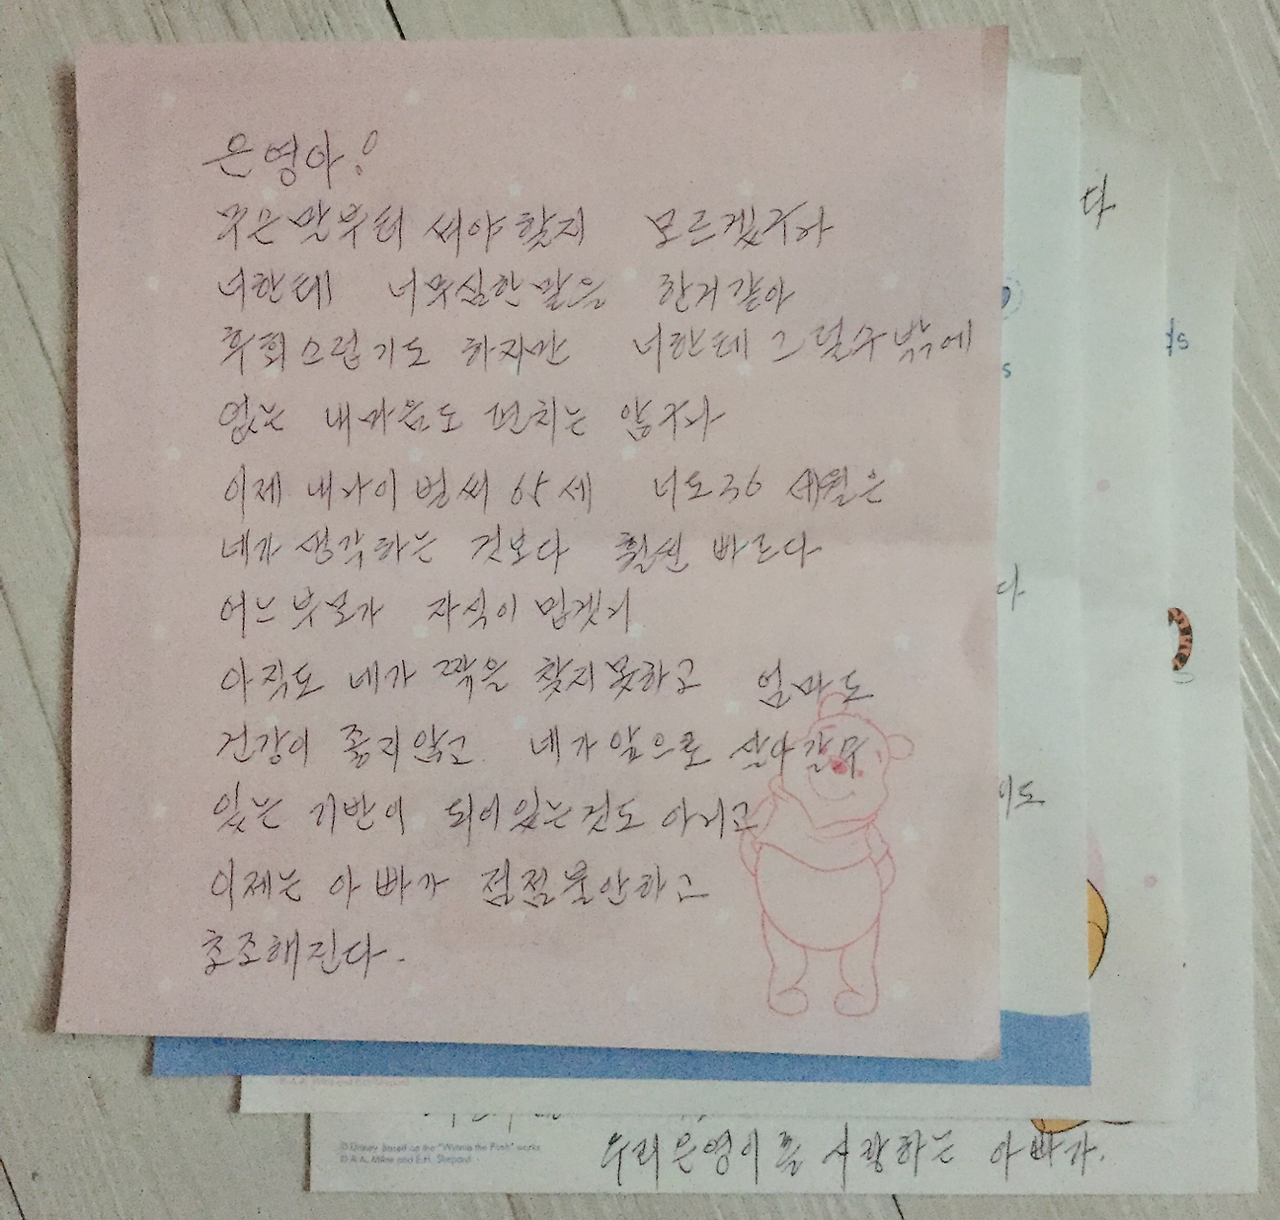 은영아!
무슨말부터 써야할지 모르겠구나
너한테 너무심한말을 한거같아
후회스럽기도 하지만 너한테 그럴수밖에
없는 내마음도 편치는 않구나
이제 내나이 벌써 65세 너도36 세월은
네가 생각하는 것보다 훨씬 빠르다
어느부모가 자식이 밉겠니
아직도 네가 짝을 찾지못하고 엄마도
건강이 좋지않고 네가앞으로 살아갈수
있는 기반이 되어있는것도 아니고
이제는 아빠가 점점불안하고
초조해진다.
다
ds
s
다
도
© Disney based on the "Winnie the Pooh" works
© A.A. Milne and E.H. Shepard
우리은영이를 사랑하는 아빠가.